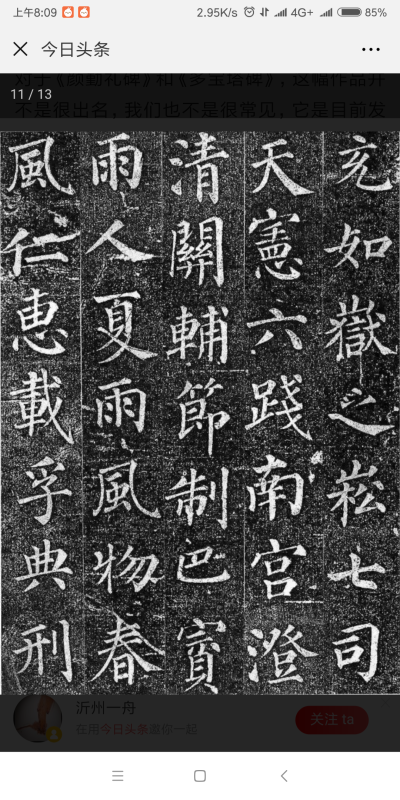 上午8:09
2.95K/s 4G+ 85%
今日头条
对于《颜勤礼碑》和《多宝塔碑》，这幅作品并
11 / 13
不是很出名，我们也不是很常见，它是目前发
充如嶽之崧七司
天憲六踐南宫澄
清關輔節制巴賨
雨人夏雨風物春
風仁恵載孚典刑
沂州一舟
在用今日头条邀你一起
关注 ta